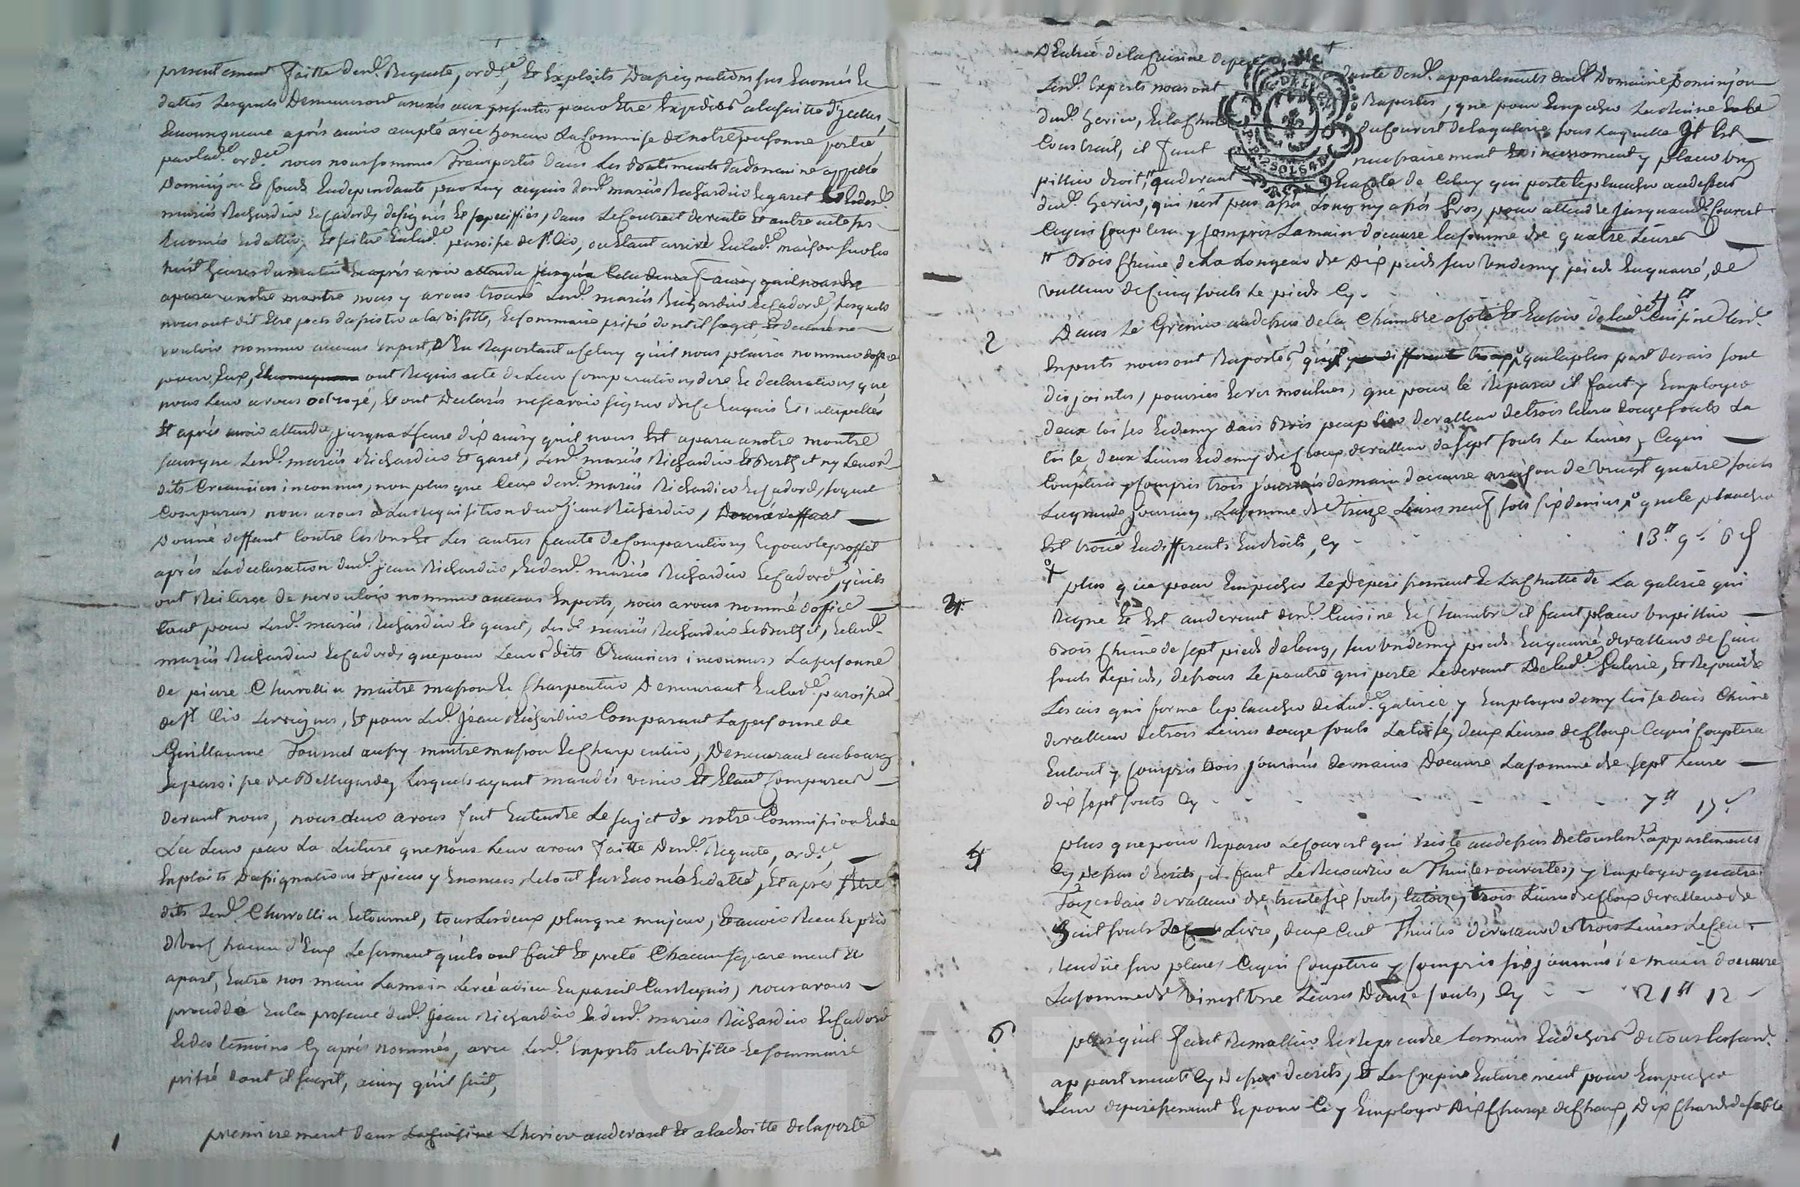 presentement faitte desd. Requete, ord.ce, et Exploits d'assignations sus Enoncés et
dattés Lesquels Demeureront annexés aux presentes pour être Expediés a la suitte d'jcelles
Enconsequence après avoir accepté avec honeur La Commise de notre personne portée
par lad. ord.ce nous nous sommes Transportés dans Les Batiments du domaine appellé
Dominjon et fonds En dependants par Luy acquis desd. mariés Richardier Legaret et desd.
mariés Richardier Lefadord, designés et specifiés, dans Le Contrat de vente et autre acte sus
Enoncés et dattés, et scitué En lad. paroisse de St Cir, ou Etant arrivé En lad. maison sur les
huit heures du matin et après avoir attendu jusqu'a
aparu a notre montre nous y avons trouvé Lesd. mariés Richardier Lefadord, Lesquels
nous ont dit Etre prets d'assister a la visitte, et sommaire prisée dont il s'agit et declare ne
vouloir nommer aucuns Expert, s'En Raportant a Celuy qu'il nous plaira nommer d'office
pour Eux, ont Requis acte de Leur Comparution dire et declarations que
nous Leur avons octroyé, et ont Declarés ne scavoir signer de ce Enquis et interpellés
Et après avoir attendu jusqu'a L'heure dix ainsy qu'il nous Est aparu a notre montre
sans que Lesd. mariés Richardier et garet, Lesd. mariés Richardier et Berthet ny Leurs
dits Creanciers inconnus, non plus que Ceux desd. mariés Richardier Lefadord, soyent
Comparus, nous avons a La Requisition dud. jean Richardier,
Donné deffaut Contre Les uns Et Les autres faute de Comparutions Et pour le proffit
après La declaration dud. jean Richardier, et desd. mariés Richardier Lefadord, qu'ils
ont Reiteré de ne vouloir nommer aucuns Experts, nous avons nommé d'office
tant pour Lesd. mariés Richardier Legaret, Lesd. mariés Richardier et Berthet, et Lesd.
mariés Richardier Lefadord, que pour Leurs dits Creanciers inconnus, La personne
de pierre Charrollin maitre masson Et Charpentier Demeurant En lad. paroisse
de St Cir Les vignes, Et pour Led. Jean Richardier Comparant La personne de
Guillaume Tournel aussy maitre masson Et Charpentier, Demeurant au bourg
Et paroisse de Bellegarde, Lesquels ayant mandés venir Et Etant Comparus
devant nous, nous Leur avons fait Entendre Le sujet de notre Commission tant
La Leur par La Lecture que nous Leur avons faitte desd. Requete, ord.ce
Exploits d'assignations Et pieces y Enoncés, Le tout sus Enoncé Et datté, Et après
dits Lesd. Charrollin Et tournel, tous Les deux plus que majeur, Et avoir Receu Et pris
d'un Chacun d'Eux Le serment qu'ils ont fait Et preté Chacun separement Et
apart, Entre nos mains La main Levée a dieu En pareil Cas Requis, nous avons
procedde En la presence dud. Jean Richardier Et desd. mariés Richardier Lefadord
Et des temoins Cy après nommés, avec Lesd. Experts a la visitte Et sommaire
prisée dont il s'agit, ainsy qu'il suit,
1 premierement dans L'herier audevant Et a la droitte de la porte
D'Entrée de la Cuisine dependante desd. appartements dud. Domaine Dominjon
Lesd. Experts nous ont Raportés, que pour Empecher La Ruine
dud. herier, Et La Chute du Couvert de la galerie sous Laquelle jl Est
Construit, il faut necessairement y placer un
pillier droit, audevant Et a Coté de Celuy qui porte Le plancher audessus
dud. herier, qui n'est pas assez Long ny assez Gros, pour atteindre jusquaud. Couvert
Ce qui Couptera y Compris La main d'oeuvre La somme de quatre Livres
Bois Chene de La Longeur de Dix pieds sur un demy pied En quarré, de
valleur de Cinq sols Le pied Cy. 4 #
2 Dans Le Grenier au dessus de la Chambre a Coté Et En soir de lad. Cuisine Lesd.
Experts nous ont Raportés, que la plus part des ais sont
disjointes, pourries Et vermoulues, que pour Le Reparer il faut y Employer
deux toises Et demy dais Bois peuplier de valleur de trois Livres douze sols La
toise deux Livres Et demy de Cloux de valleur de sept sols La Livre, Ce qui
Couptera y Compris trois journées de main d'oeuvre a raison de vingt quatre sols
La grande journée, La somme de treize Livres neuf sols six deniers, que le plancher
Est troué En differents Endroits, Cy 13 # 9 s 6 d
3 plus que pour Empecher Le Deperissement Et La Chutte de La galerie qui
Regne Et Est audevant desd. Cuisine Et Chambre il faut placer un pillier
Bois Chene de sept pieds de long, sur un demy pied En quarré de valleur de Cinq
sols Le pied, dessous Le poutre qui porte Ledevant De lad. Galerie, Et Rejoindre
Les ais qui forme Le plancher de lad. galerie, y Employer demy toise dais Chene
de valleur de trois Livres douze sols La toise, deux Livres de Cloux Ce qui Couptera
En tout y Compris trois journées de main Doeuvre La somme de sept Livres
dix sept sols Cy 7 # 17 s
4 plus que pour Reparer Le Couvert qui Existe audessus De tous Lesd. appartements
Cy dessus d'Ecrits, il faut Le Recourir a Thuiles ouvertes, y Employer quatre
dais de valleur de trente six sols, La toise, trois Livres de Cloux de valleur de
huit sols La Livre, deux Cent Thuiles de valleur de trois Livres Le Cent
rendue sur place, Ce qui Couptera y Compris six journées de main doeuvre
La somme de vingt une Livres Douze sols, Cy 21 # 12
5 plus qu'il faut Remallier Et Reprendre Les murs En dehors de tous Lesd.
appartements Cy dessus decrits, Et Les Crepir Entierement pour Empecher
Leur deperissement Et pour Ce y Employer Dix Charge de Chaux, Dix Chards de sable